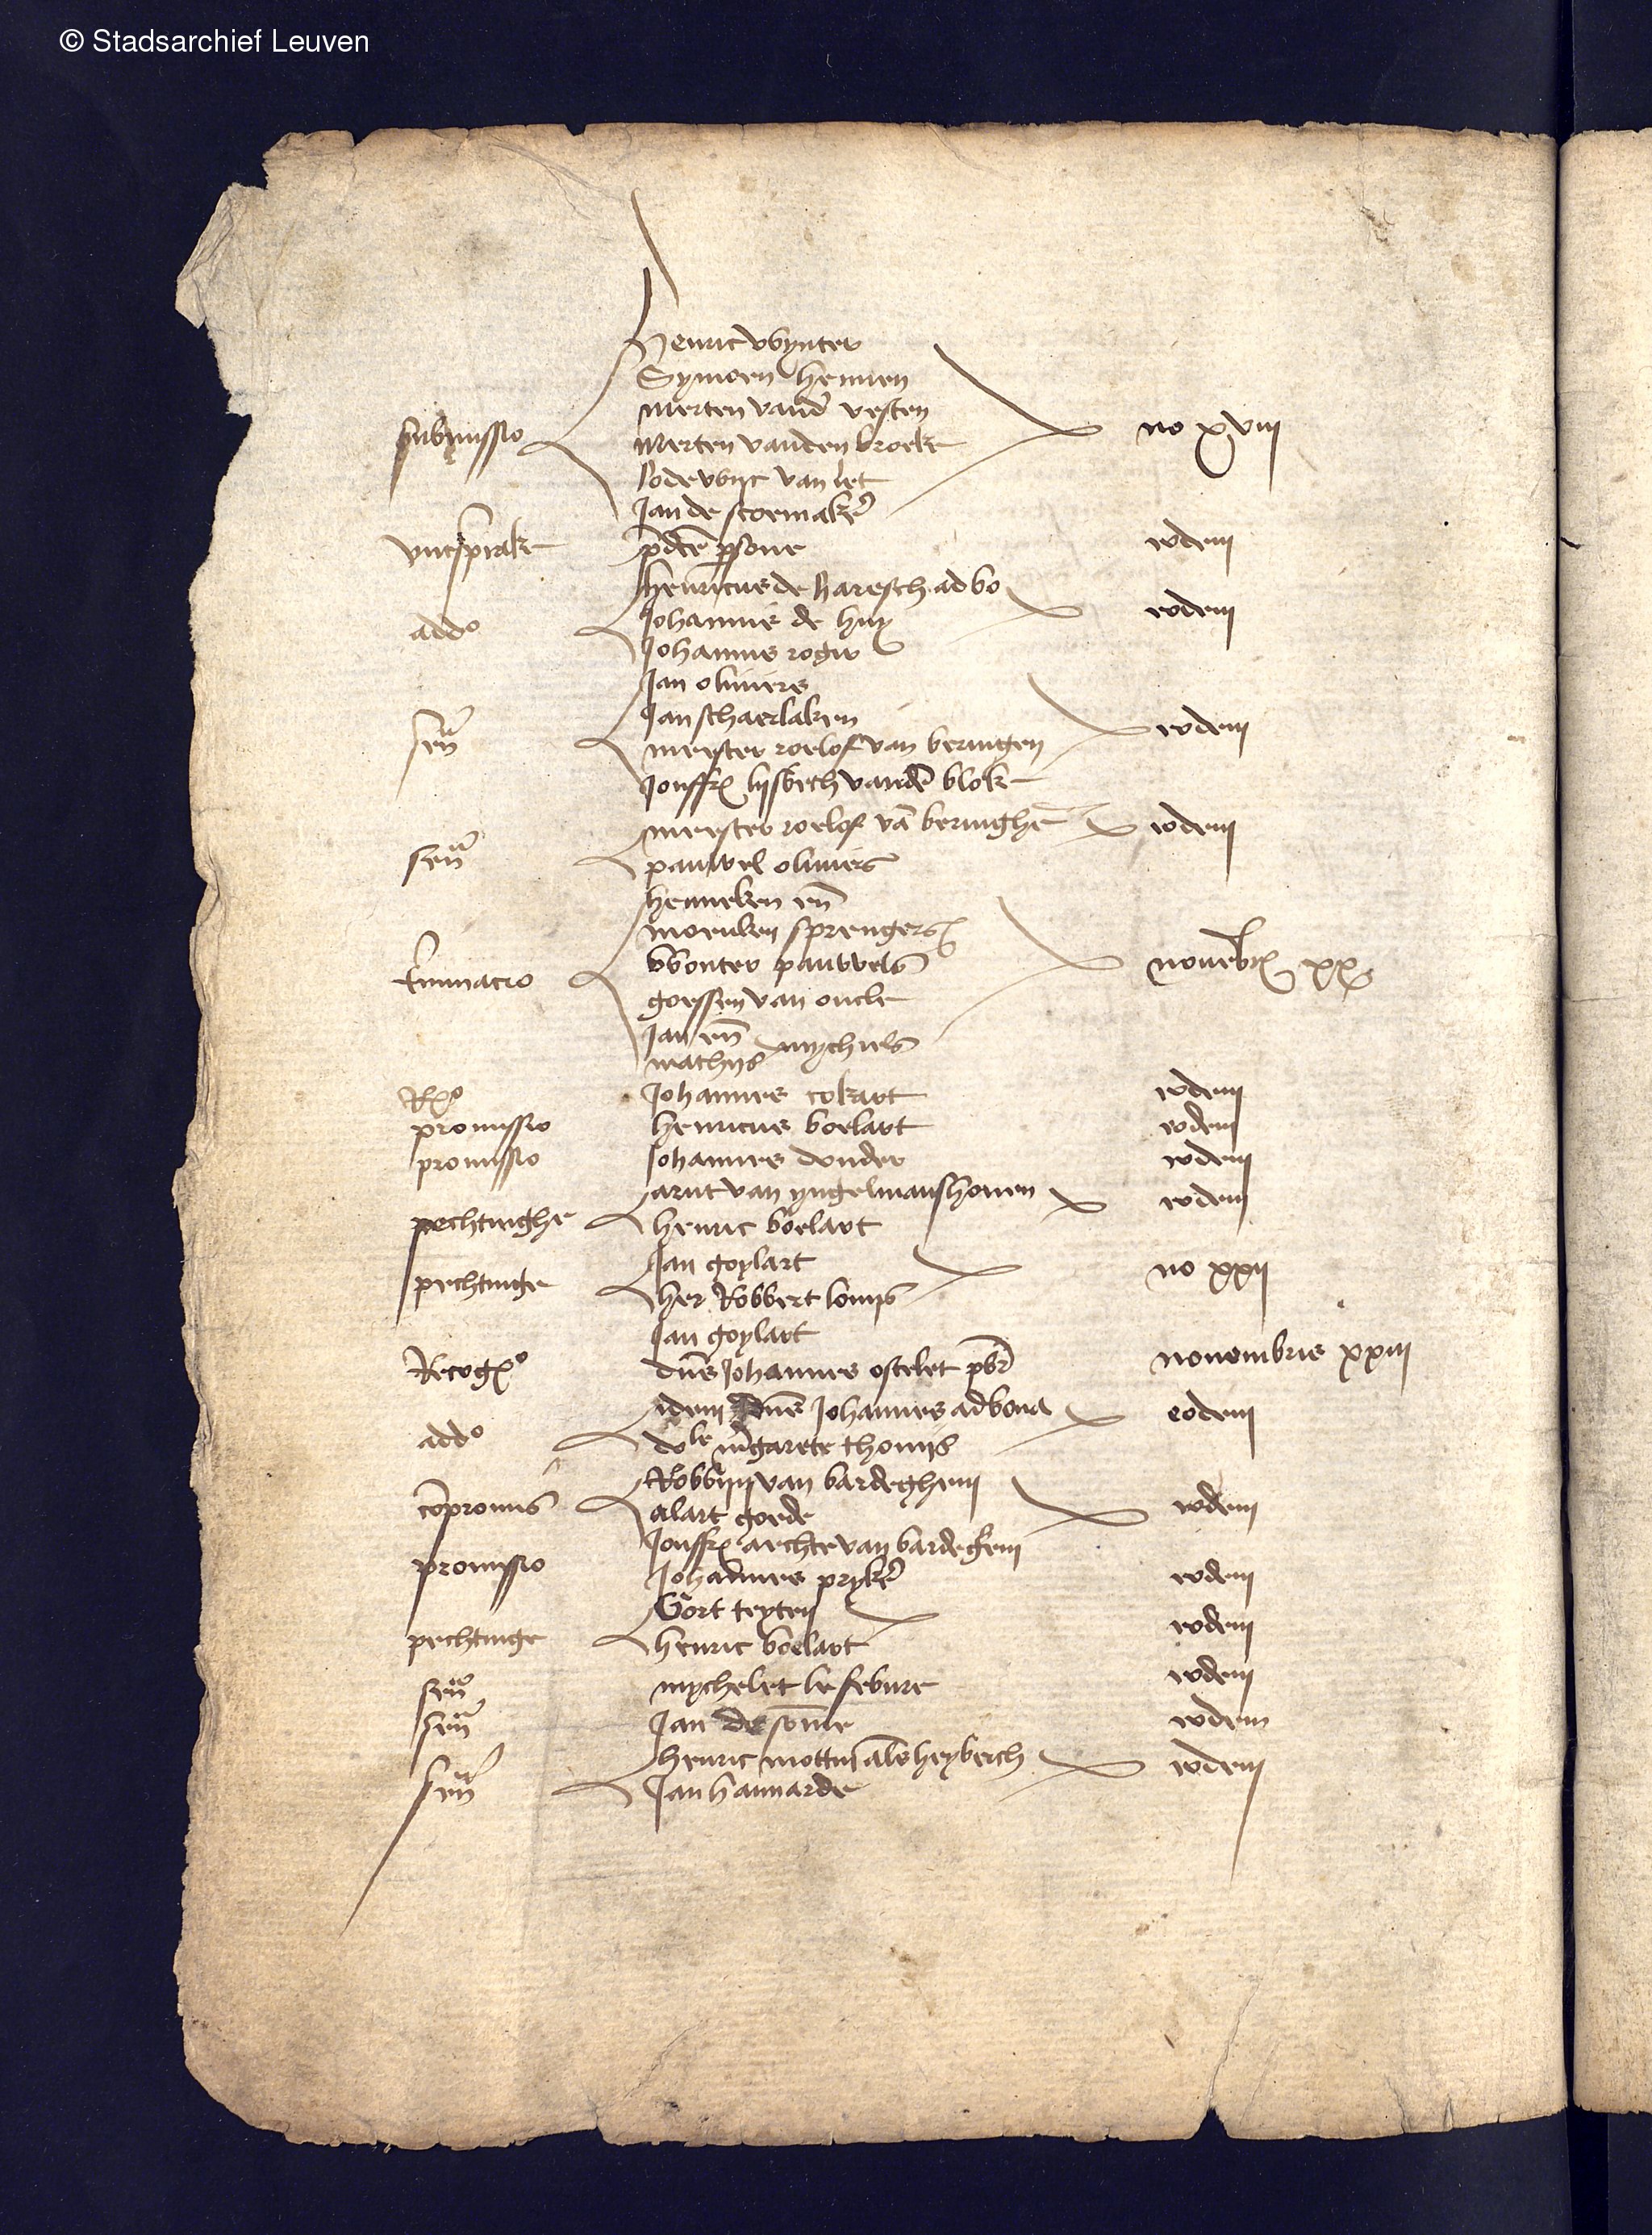 © Stadsarchief Leuven
Henric wynter
Symoen hermen
merten vand vesten
submissio merten vanden broeke no xviii
lodewyc van let
Jan de scoemak
vutsprake pdce psone eodem
henricus de haresch advo
addo Johannes de huy eodem
Johannes rogir
Jan oliviers
Jan schaerlaken
sen meester roelof van beringen eodem
Jouffr lijsbeth vanden block
meester roelof va beringhe eodem
sen pauwel oliviers
henneken en
moenken sprengers
wouter pauwels novebr xx
goessen van oucle
Jan en
mathijs mychiels
Rx Johannes cokart eodem
promissio henricus boelart eodem
promissio Johannes donder eodem
arnt van yngelmanshoven eodem
pechtinghe henric boelart
Jan goylart no xxii
pechtinge her Robbert lonijs
Jan goylart
Recogo dns Johannes ostelet pbr novembris xxiii
idem dns Johannes advona eodem
addo dole mgarete thonijs
Robbijn van bardeghem
copromis alart goede eodem
Jouffr aechte van bardegem
promissio Johannes pryke eodem
Gort teyten eodem
pechtinge henric boelart
sen mychelet le febure eodem
sen Jan de some eodem
henric mottin als heyberch eodem
sen Jan hannarde